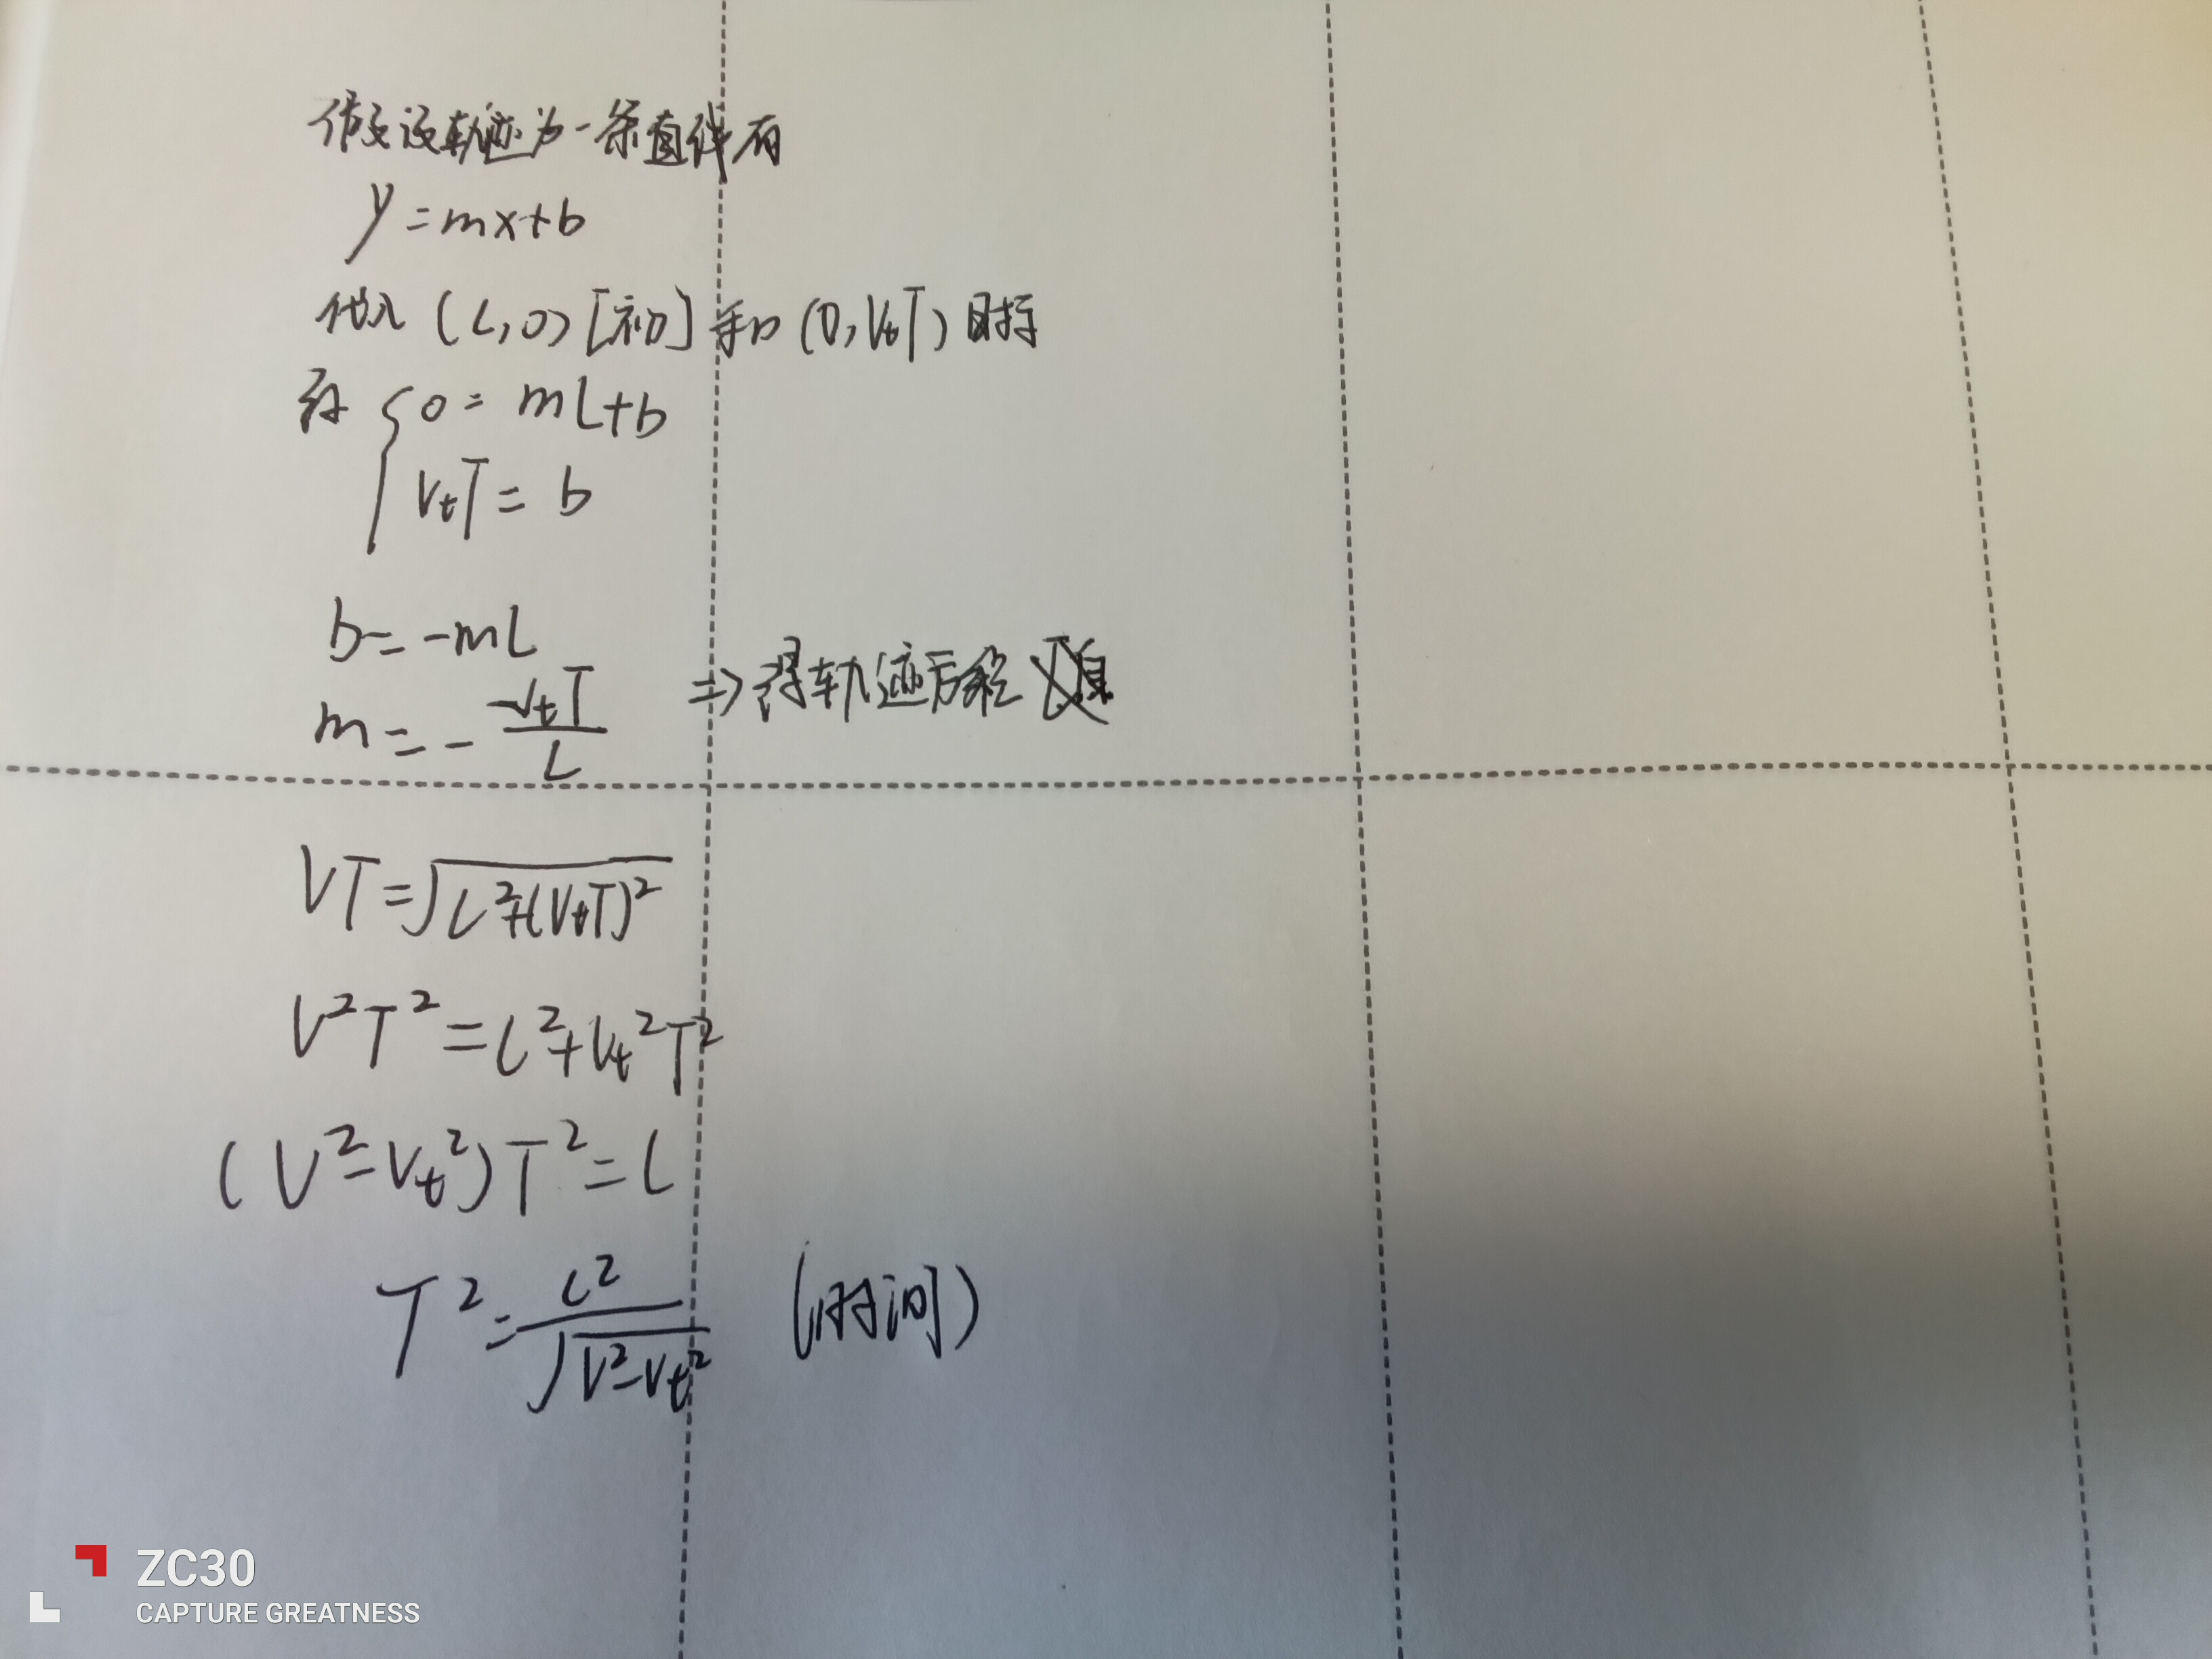 假设轨迹为一条直线有
y=mx+b
代入 (L,0) [初] 和 (0,VtT) 目标
有 { 0 = mL+b
VtT = b
b = -mL
m = - VtT / L ⇒ 得轨迹方程
VT = √(L²+(VtT)²)
V²T² = L²+Vt²T²
(V²-Vt²)T² = L
T² = L² / √(V²-Vt²) (时间)
ZC30
CAPTURE GREATNESS